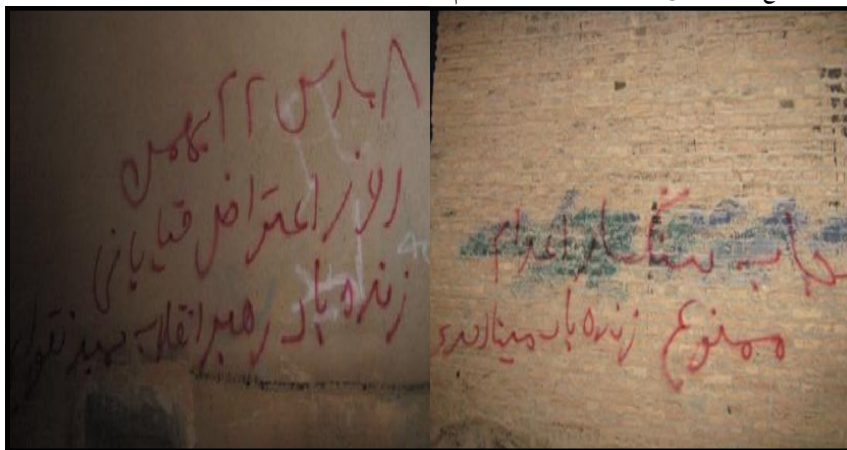 ۸ مارس ۲۲ بهمن
روز اعتراض خیابانی
زنده باد رهبر انقلاب حمید تقوایی
حجاب سنگسار اعدام
ممنوع زنده باد مینا احدی